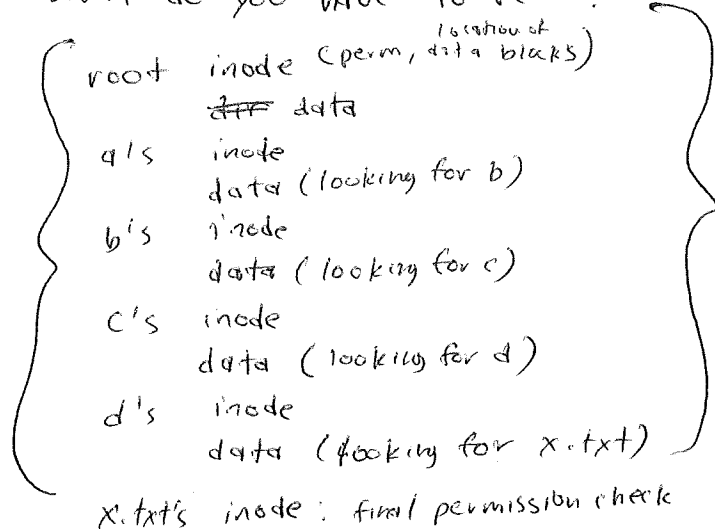 root inode (perm, location of data blocks)
data
a's inode
data (looking for b)
b's inode
data (looking for c)
c's inode
data (looking for d)
d's inode
data (looking for x.txt)
x.txt's inode: final permission check